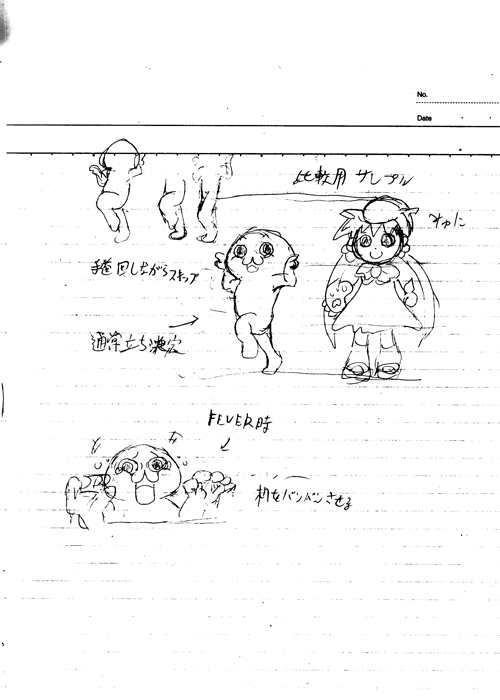 No.
Date
比較用 サンプル
手首回しながらスキップ
通常立ち決定
FEVER時
机をバンバンさせる